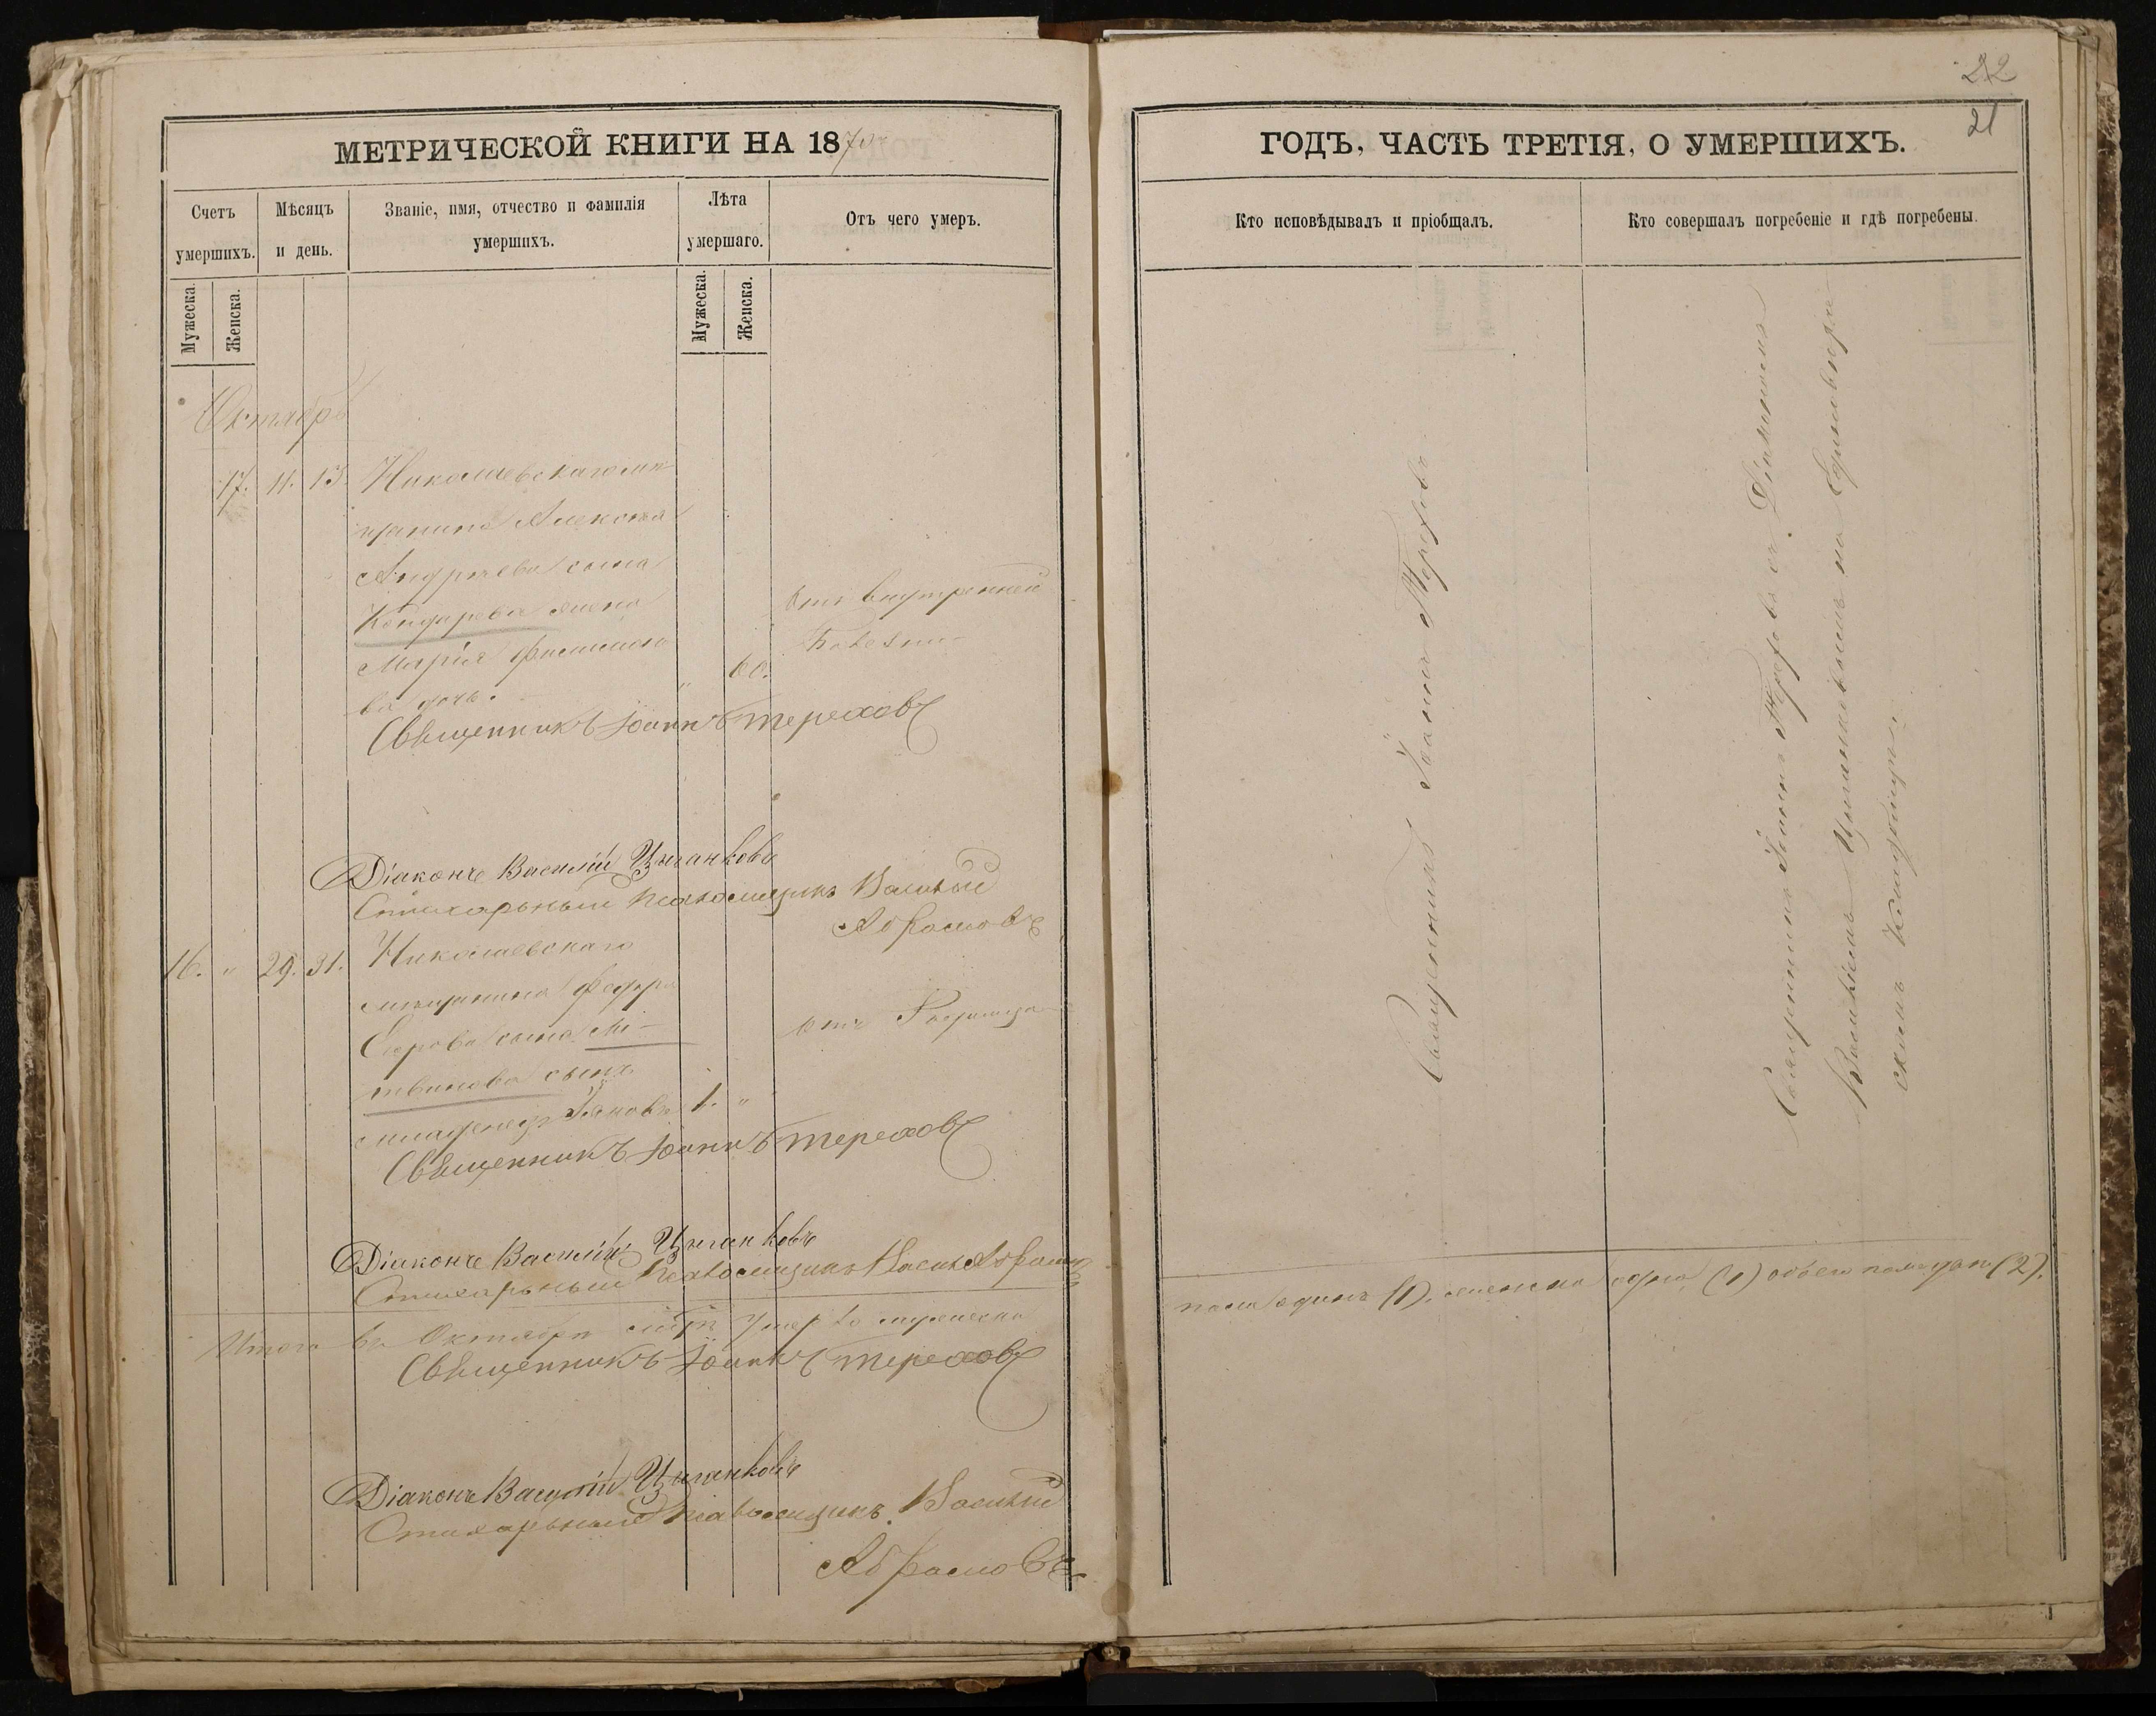 22
21
МЕТРИЧЕСКОЙ КНИГИ НА 1870
ГОДЪ, ЧАСТЬ ТРЕТІЯ, О УМЕРШИХЪ.
Счетъ умершихъ.
Мѣсяцъ и день.
Званіе, имя, отчество и фамилія умершихъ.
Лѣта умершаго.
Отъ чего умеръ.
Кто исповѣдывалъ и пріобщалъ.
Кто совершалъ погребеніе и гдѣ погребены.
Мужеска.
Женска.
Мужеска.
Женска.
Октябрь
17. 11. 13. Николаевскаго мѣ-
щанина Алексѣя
Андреева сына
Кондарева жена
Марія Филимоно-
ва дочь. " 60.
Отъ внутренней
болезни
Священникъ Іоаннъ Тереховъ
Діаконъ Василій Цыганковъ
Стихарный Псаломщикъ Василій
Абрамовъ
16. " 29. 31. Николаевскаго
мѣщанина Федора
Егорова сына Ли-
твинова сынъ
младенецъ Іяковъ 1. "
отъ
Священникъ Іоаннъ Тереховъ
Діаконъ Василій Цыганковъ
Стихарный Псаломщикъ Васил Абрамовъ
Итого въ Октябрѣ мцѣ умерло мужеска
Священникъ Іоаннъ Тереховъ
Діаконъ Василій Цыганковъ
Стихарный Псаломщикъ Василій
Абрамовъ
Священникъ Іоаннъ Тереховъ
Священникъ Іоаннъ Тереховъ съ Діакономъ
Василіемъ Цыганковымъ на
скомъ Кладбищѣ.
пола одинъ (1). женска одна (1) обоего пола два (2).